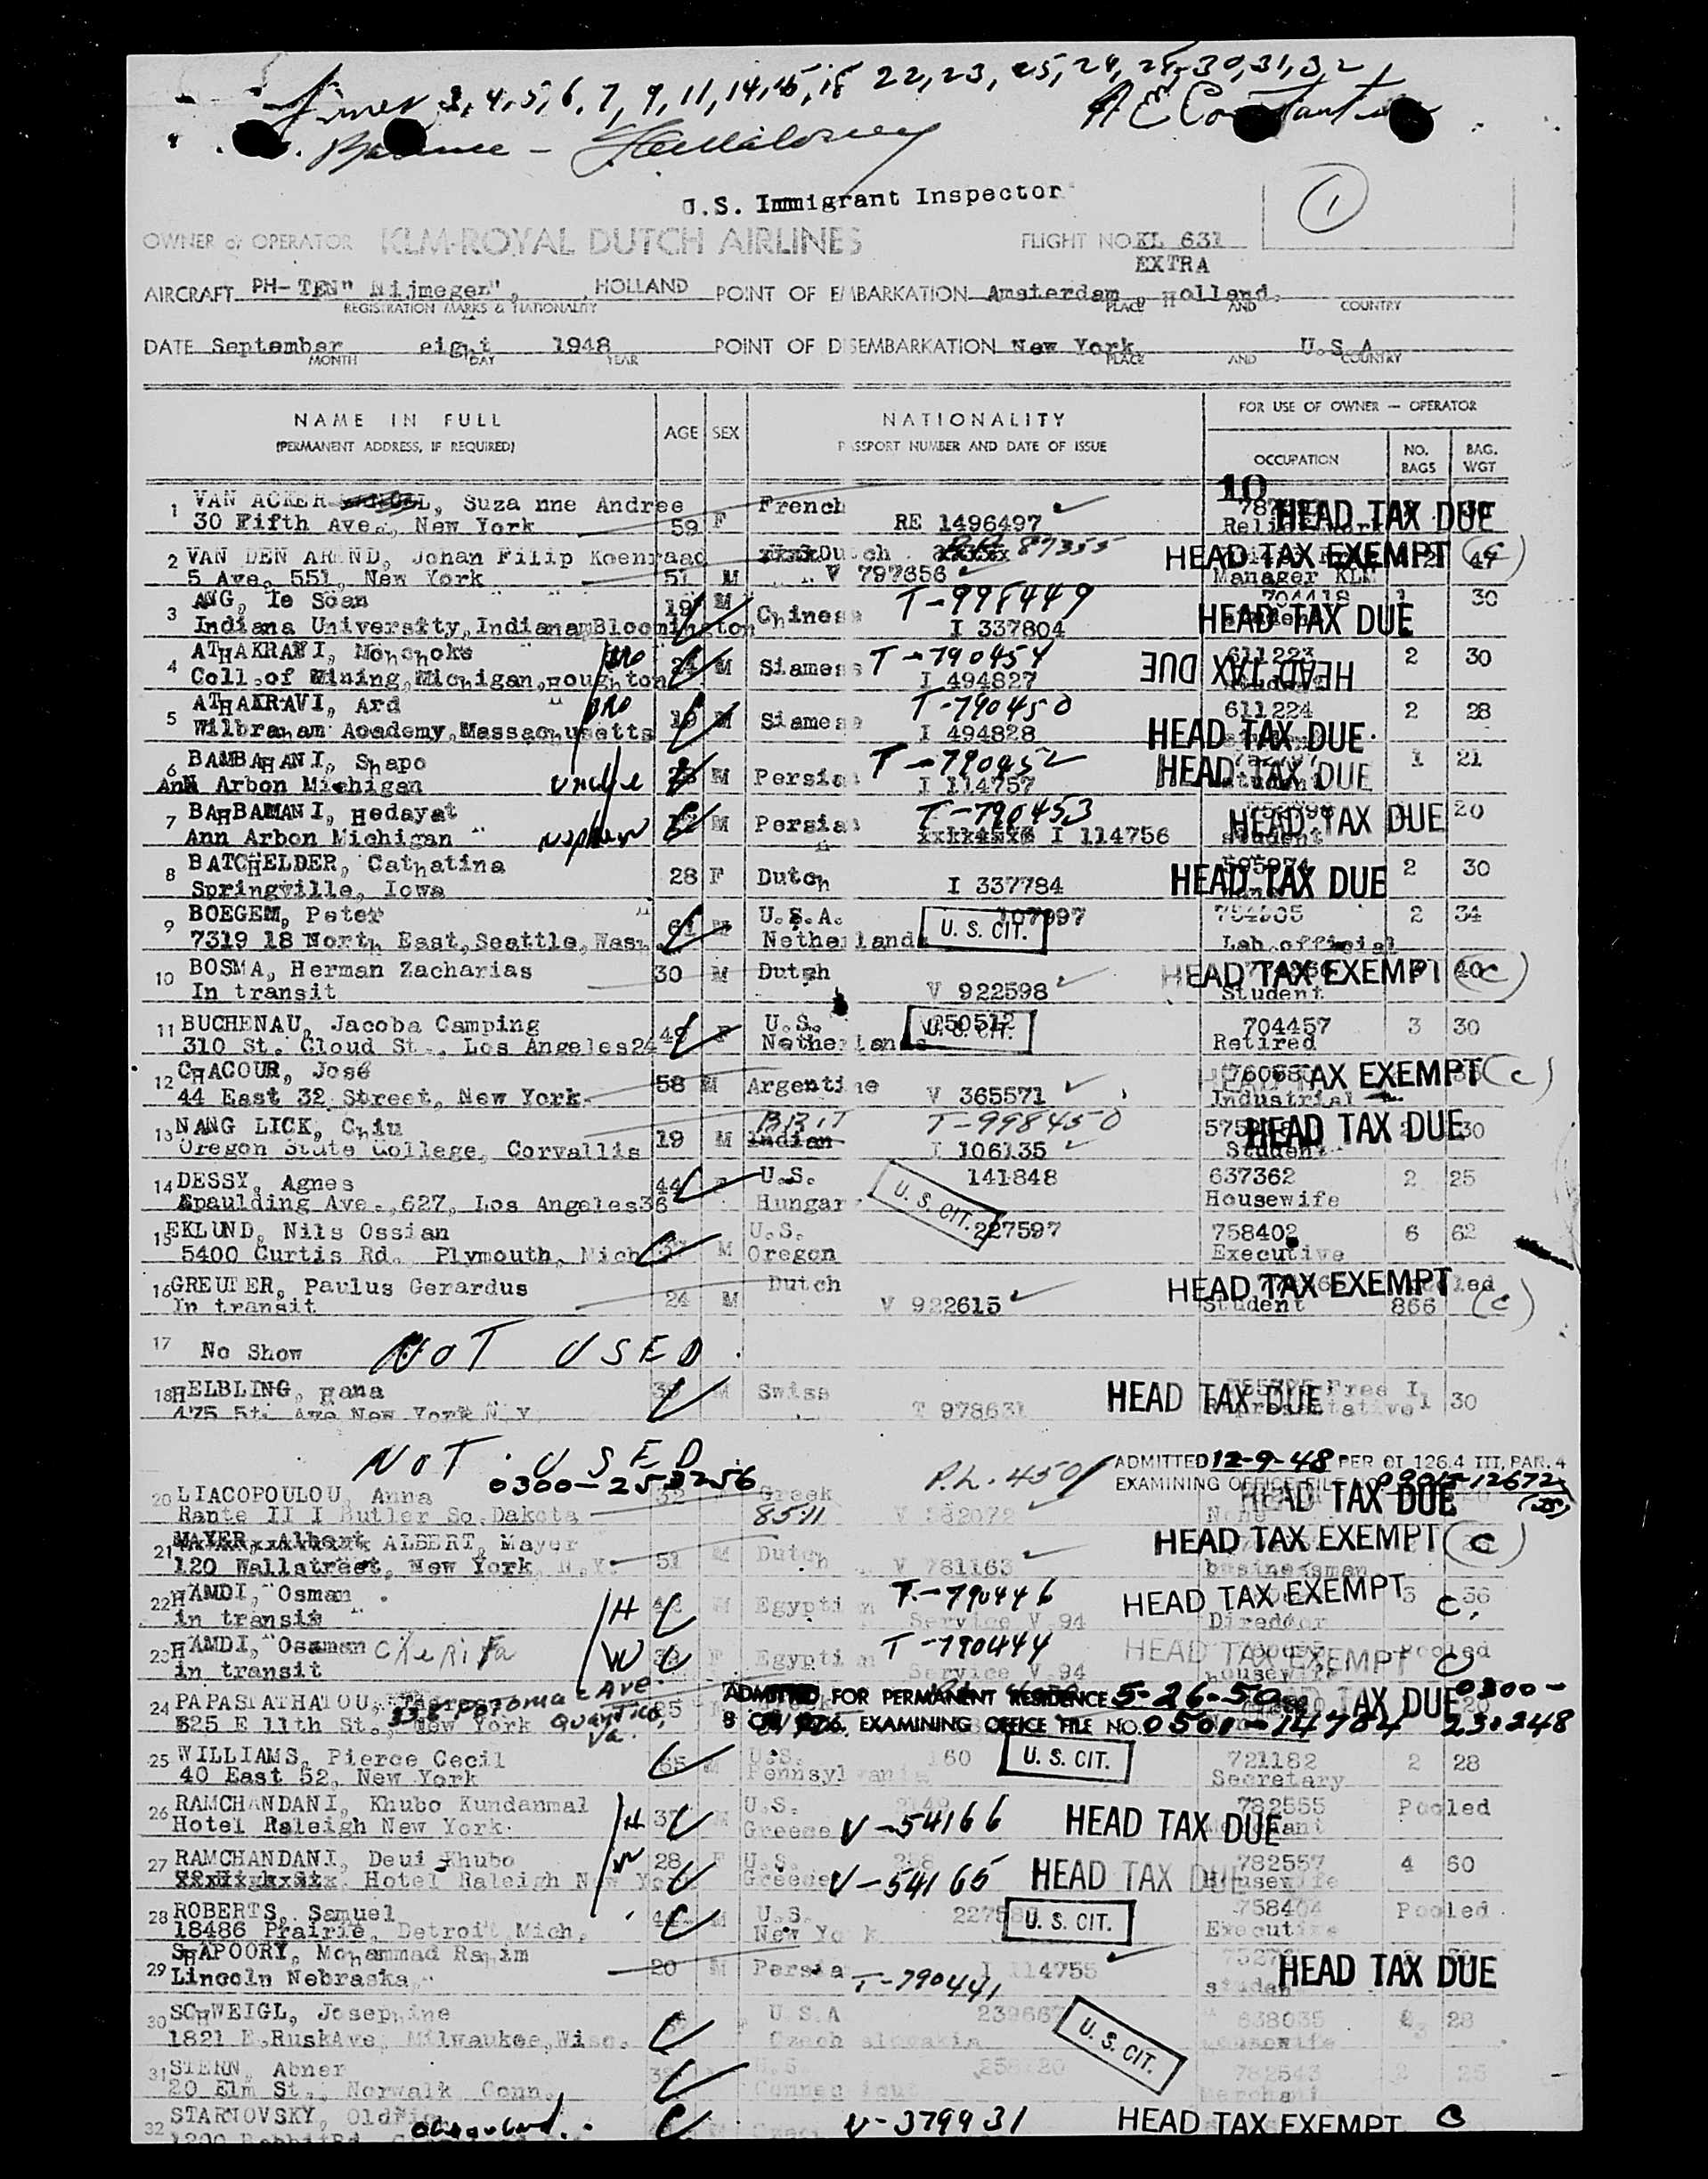 3, 4, 5, 6, 7, 9, 11, 14, 15, 18 22, 23, 25, 24, 28, 30, 31, 32
A E
U.S. Immigrant Inspector
1
OWNER or OPERATOR KLM-ROYAL DUTCH AIRLINES FLIGHT NO. KL 631
EXTRA
AIRCRAFT PH-TEN" Nijmegen", HOLLAND POINT OF EMBARKATION Amsterdam, Holland.
REGISTRATION MARKS & NATIONALITY PLACE AND COUNTRY
DATE September eight 1948 POINT OF DISEMBARKATION New York U.S.A
MONTH DAY YEAR PLACE AND COUNTRY
NAME IN FULL AGE SEX NATIONALITY FOR USE OF OWNER — OPERATOR
(PERMANENT ADDRESS, IF REQUIRED) PASSPORT NUMBER AND DATE OF ISSUE OCCUPATION NO. BAGS BAG. WGT
10
1 VAN ACKER, Suzanne Andree 59 F French HEAD TAX DUE
30 Fifth Ave., New York RE 1496497
2 VAN DEN AREND, Johan Filip Koenraad 51 M Dutch 87355 HEAD TAX EXEMPT (c) 47
5 Ave, 551, New York V 797656 Manager KLM
3 ANG, Ie Soan 19 M Chinese T-998449 704418 1 30
Indiana University, Indiana, Bloomington I 337804 HEAD TAX DUE
4 ATHAKRAVI, Monchoke BRO 21 M Siamese T-790454 611223 2 30
Coll. of Mining, Michigan, Houghton I 494827 HEAD TAX DUE
5 ATHAKRAVI, Ard BRO 19 M Siamese T-790450 611224 2 28
Wilbraham Academy, Massachusetts I 494828 HEAD TAX DUE
6 BAMBAHANI, Shapo M Persian T-790452 HEAD TAX DUE 1 21
Ann Arbon Michigan Uncle I 114757
7 BAHBAHANI, Hedayat M Persian T-790453 HEAD TAX DUE 20
Ann Arbon Michigan Nephew I 114756 Student
8 BATCHELDER, Cathatina 28 F Dutch 2 30
Springville, Iowa I 337784 HEAD TAX DUE
9 BOEGEM, Peter 61 M U.S.A. 107997 U. S. CIT. 2 34
7319 18 North East, Seattle, Wash. Netherlands Lab. official
10 BOSMA, Herman Zacharias 30 M Dutch HEAD TAX EXEMPT (c) 40
In transit V 922598 Student
11 BUCHENAU, Jacoba Camping 49 F U.S. U. S. CIT. 704457 3 30
310 St. Cloud St., Los Angeles 24 Netherlands Retired
12 CHACOUR, José 58 M Argentine HEAD TAX EXEMPT (c)
44 East 32 Street, New York. V 365571 Industrial
13 NANG LICK, Chiu 19 M Indian BRIT T-998450 HEAD TAX DUE 30
Oregon State College, Corvallis I 106135 Student
14 DESSY, Agnes 44 F U.S. 141848 637362 2 25
Spaulding Ave., 627, Los Angeles 36 Hungary U. S. CIT. Housewife
15 EKLUND, Nils Ossian M U.S. 227597 758402 6 62
5400 Curtis Rd. Plymouth, Mich Oregon Executive
16 GREUTER, Paulus Gerardus 24 M Dutch HEAD TAX EXEMPT (c)
In transit V 922615 Student 866
17 No Show NOT USED
18 HELBLING, Hans M Swiss HEAD TAX DUE 1 30
475 5th Ave New York N.Y. T 978631 Representative
NOT USED
0300-253256 P.L. 450 ADMITTED 12-9-48 PER OI 126.4 III, PAR. 4
20 LIACOPOULOU, Anna 32 Greek EXAMINING OFFICE FILE NO. 0901-12672
Rante 11 1 Butler So. Dakota 8511 V 582072 None HEAD TAX DUE
21 ALBERT, Mayer 51 M Dutch HEAD TAX EXEMPT (c)
120 Wallstreet, New York, N.Y. V 781163 businessman
22 HAMDI, Osman H M Egyptian T-790446 HEAD TAX EXEMPT C. 3 56
in transit Service V 94
23 HAMDI, Osaman Cherifa W F Egyptian T-790444 HEAD TAX EXEMPT C Pooled
in transit Service V 94 housewife
24 PAPASTATHATOU, Potomac Ave. ADMITTED FOR PERMANENT RESIDENCE 5-26-50 TAX DUE 0300-
325 E 11th St., New York Quantico, Va. EXAMINING OFFICE FILE NO. 0501-14704 23.248
25 WILLIAMS, Pierce Cecil 65 M U.S. 160 U. S. CIT. 721182 2 28
40 East 52, New York Pennsylvania Secretary
26 RAMCHANDANI, Khubo Kundanmal H 37 M U.S. 782555 Pooled
Hotel Raleigh New York. Greece V-54166 HEAD TAX DUE
27 RAMCHANDANI, Deui Khubo W 28 F U.S. 782557 4 60
Hotel Raleigh New York Greece V-54165 HEAD TAX DUE Housewife
28 ROBERTS, Samuel M U.S. U. S. CIT. 758404 Pooled
18486 Prairie, Detroit Mich. New York Executive
29 SHAPOORY, Mohammad Rahim 20 M Persia I 114755 HEAD TAX DUE
Lincoln Nebraska T-790441 student
30 SCHWEIGL, Josephine U.S.A 239667 638035 28
1821 E. Rusk Ave, Milwaukee, Wisc. Czechoslovakia U. S. CIT. housewife
31 STERN, Abner U.S. 258120 782543 2 25
20 Elm St., Norwalk Conn. Connecticut Merchant
32 STARNOVSKY, V-379931 HEAD TAX EXEMPT C